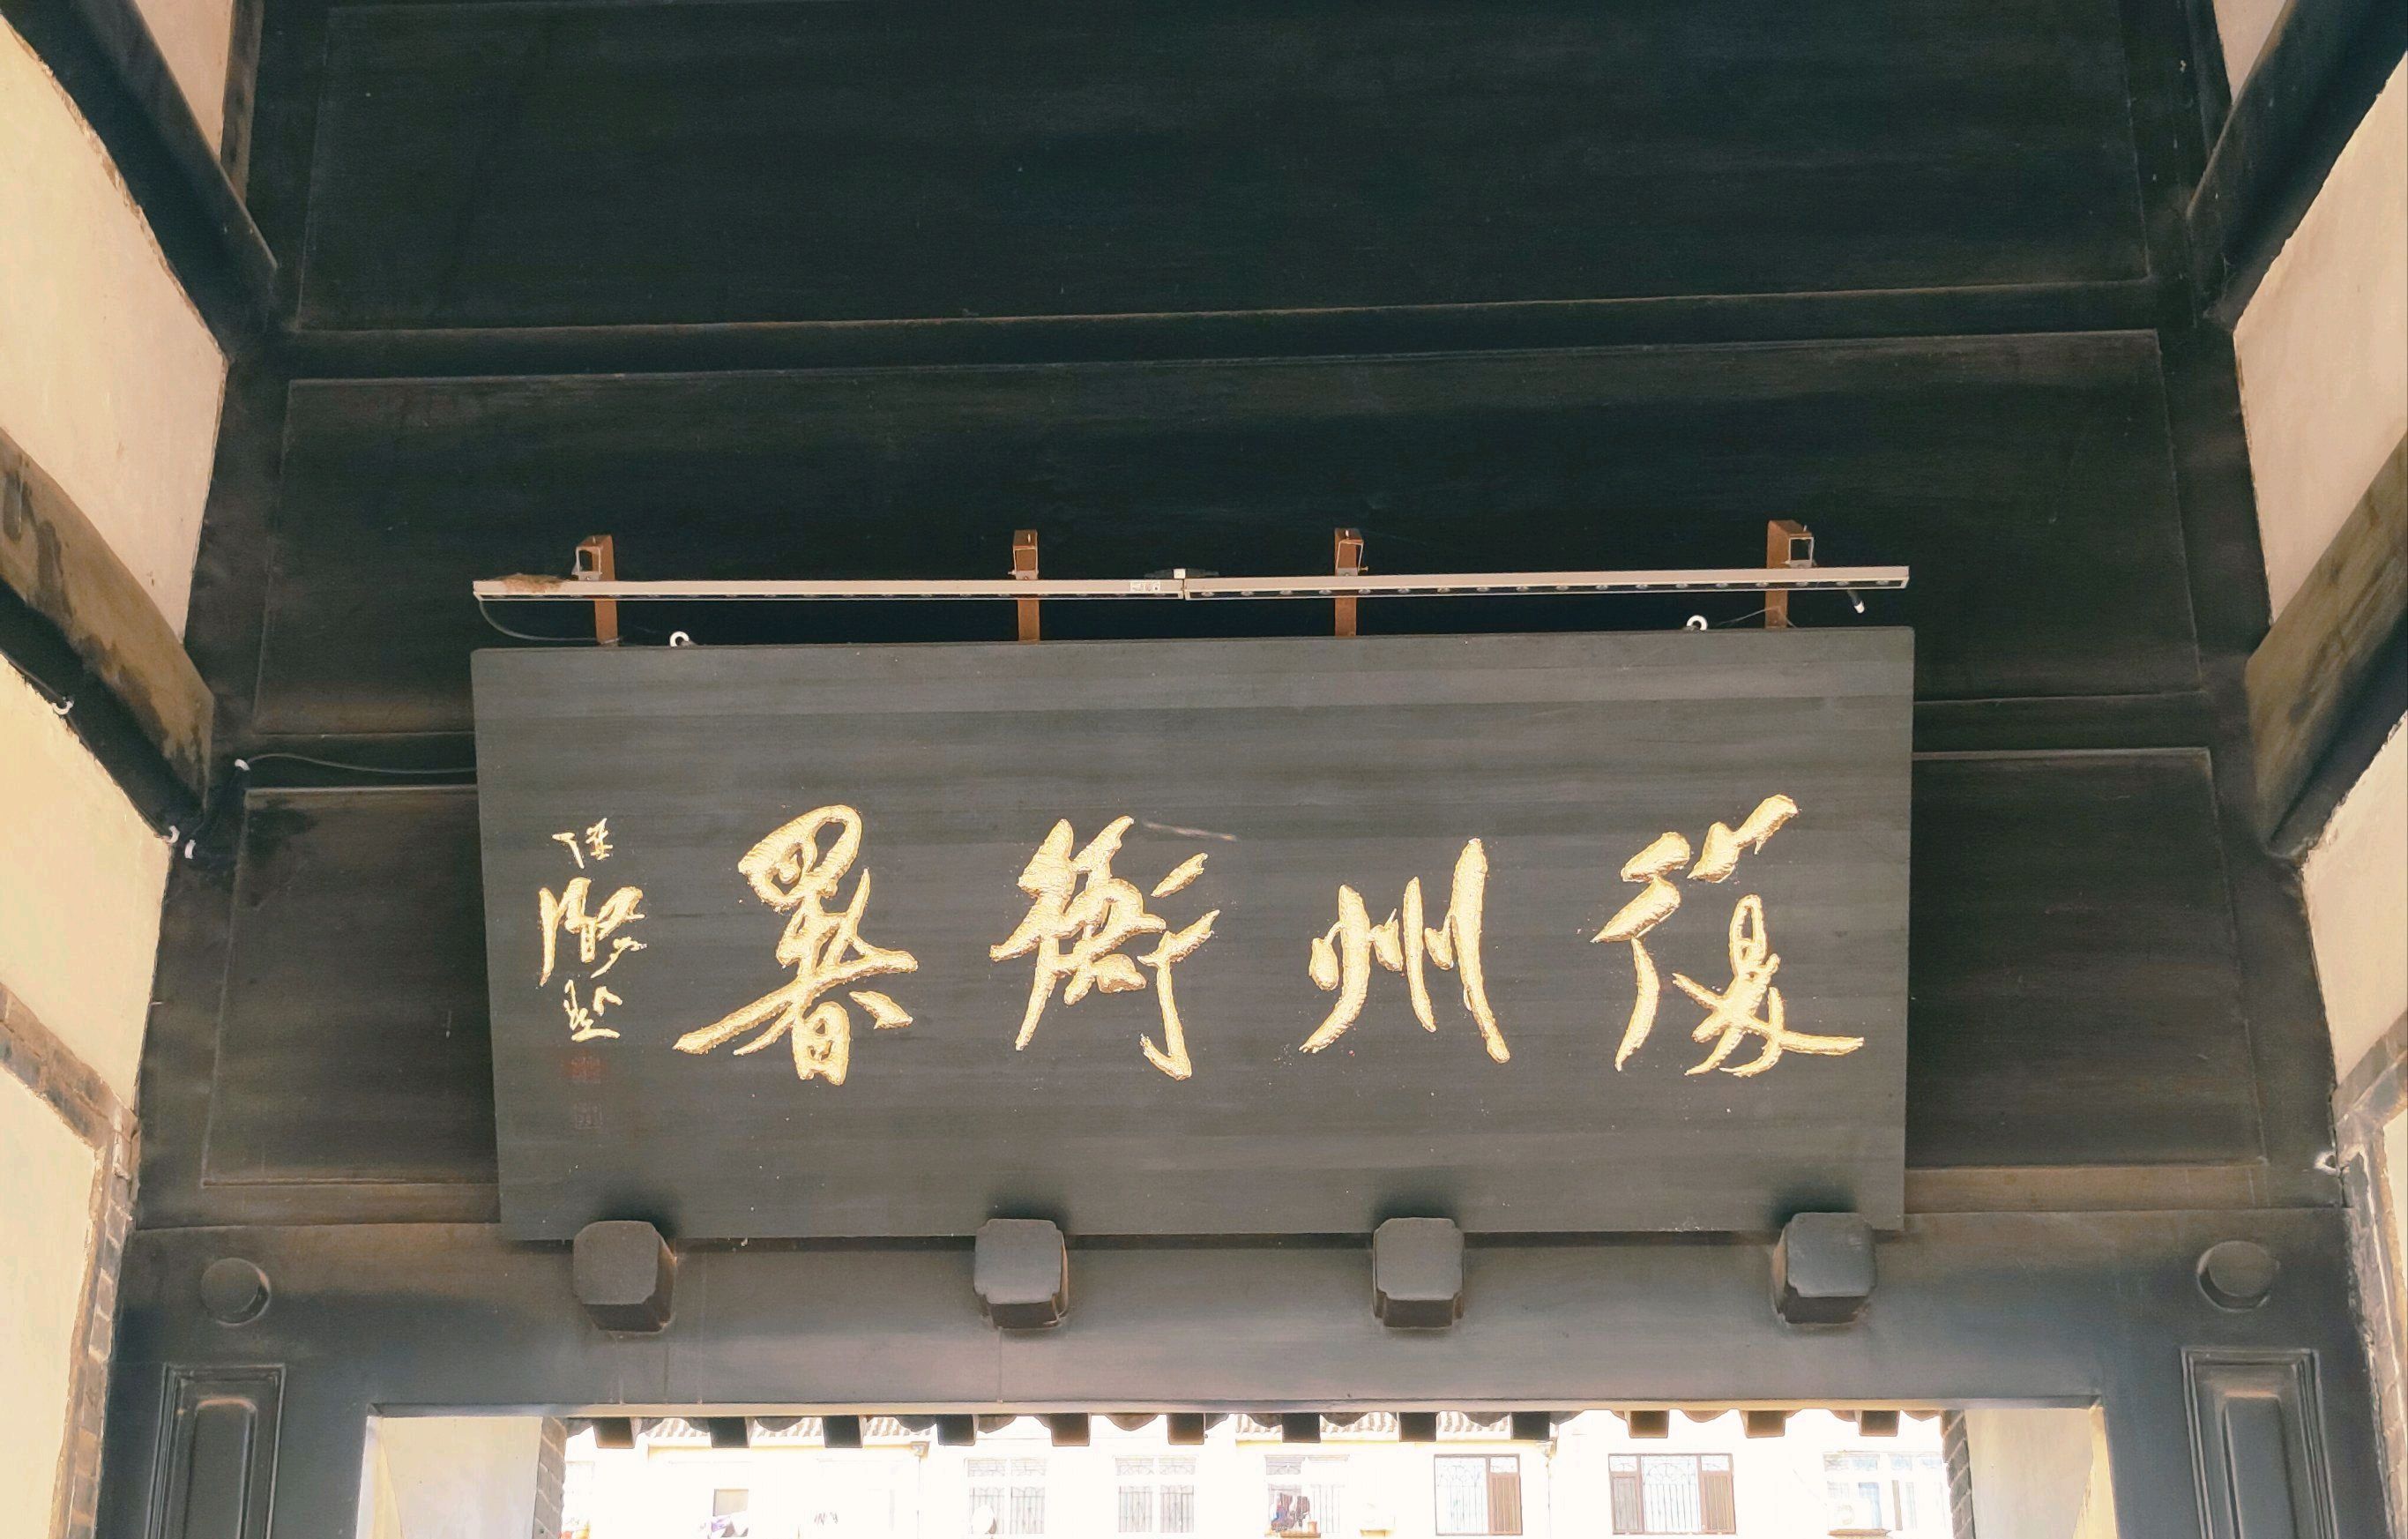 復州衙署